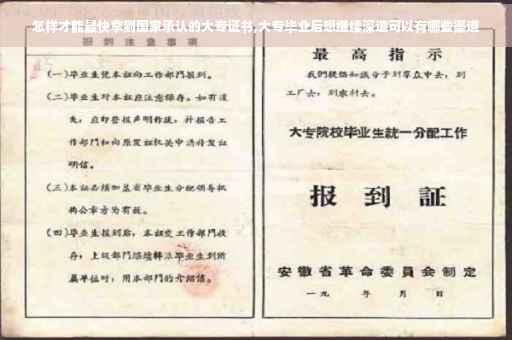 怎样才能最快拿到国家承认的大专证书,大专毕业后想继续深造可以有哪些渠道
报到注意事项
(一)毕业生凭本证向工作部门报到。
(二)毕业生对本证应注意保存。如有遗
失，应即登报声明作废，并报告工
作部门和向原发证机关申请补发证
明信。
(三)本证必须加盖省毕业生分配领导机
构公章方为有效。
(四)毕业生报到后，本证交工作部门收
存，上级部门继续转派毕业生到所
属单位时，用本部门的介绍信。
最高指示
我们提倡知识分子到群众中去，到
工厂去，到农村去。
大专院校毕业生統一分配工作
报到証
安徽省革命委員会制定
一九 年 月 日